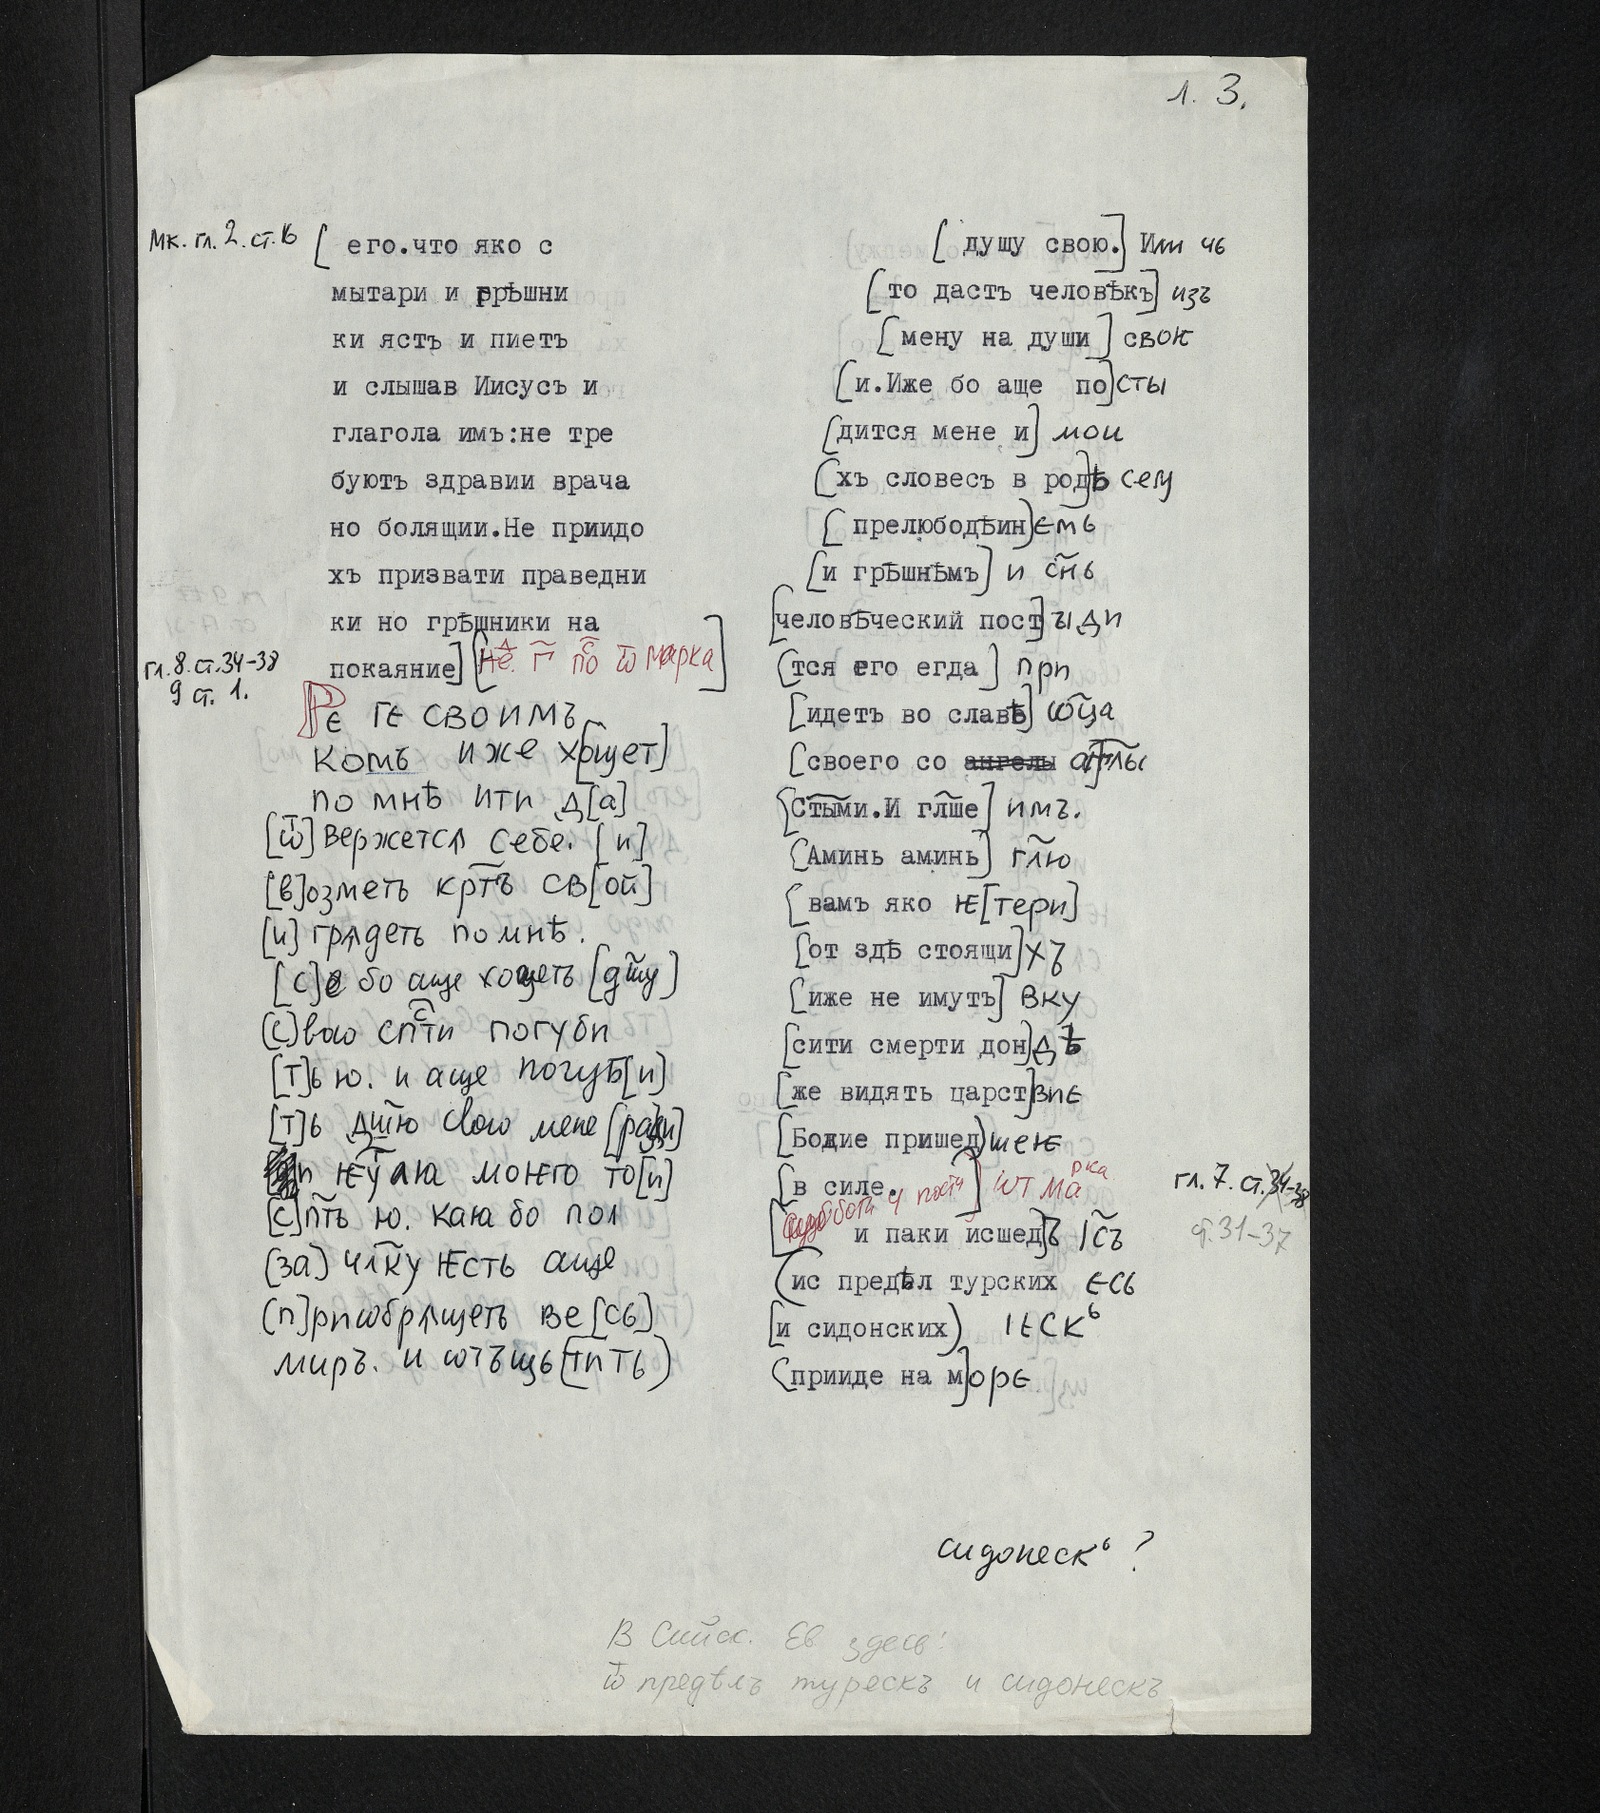 л. 3.
Мк. гл. 2. ст. 16
[ его.что яко с
мытари и грѣшни
ки ястъ и пиетъ
и слышав Иисусъ и
глагола имъ:не тре
буютъ здравии врача
но болящии.Не приидо
хъ призвати праведни
ки но грѣшники на
покаяние] [не҃. г҃ по ѿ марка]
гл. 8. ст. 34-38
9 ст. 1.
Рє гє своимъ
комъ иже хо[щет]
по мнѣ ити д[а]
[ѿ]вержетсѧ себе. [и]
[в]озметь кр҃тъ св[ой]
[и] грѧдеть по мнѣ.
[с]е бо аще хощеть [дш҃у]
[с]вою сп҃сти погуби
[т]ь ю. и аще погуб[и]
[т]ь дш҃ю свою мене [ради]
и ѥу҃лиꙗ моѥго то[и]
[с]п҃ть ю. каꙗ бо пол
[за] чл҃ку ѥсть аще
[п]риѡбрѧщеть ве[сь]
миръ. и ѡтъщь[тить]
[ душу свою.] Или чь
[то дастъ человѣкъ] изъ
[мену на души] своѥ
[и.Иже бо аще по]сты
[дится мене и] мои
[хъ словесъ в род]ѣ семъ
[ прелюбодѣин]ємь
[и грѣшнѣмъ] и сн҃ь
[человѣческий пост]ыди
[тся его егда] при
[идетъ во славѣ] ѡц҃а
[своего со ангелы а]гл҃ы
[Стыми.И гл҃ше] имъ.
[Аминь аминь] гл҃ю
[вамъ яко ѥ[тери]
[от здѣ стоящи]хъ
[иже не имутъ] вку
[сити смерти дон]дѣ
[же видять царст]виє
[Божие пришед]шеѥ
[в силе.] ѡт марка
гл. 7. ст. 34-38
[суббота ч поста и паки исшед]ъ іс҃ъ
ст. 31-37
[ис предѣл турских єсь
[и сидонских) ієскь
[прииде на м]оре
сидонескь ?
В Сийск. Ев. здесь:
ѿ предѣлъ турескъ и сидонескъ